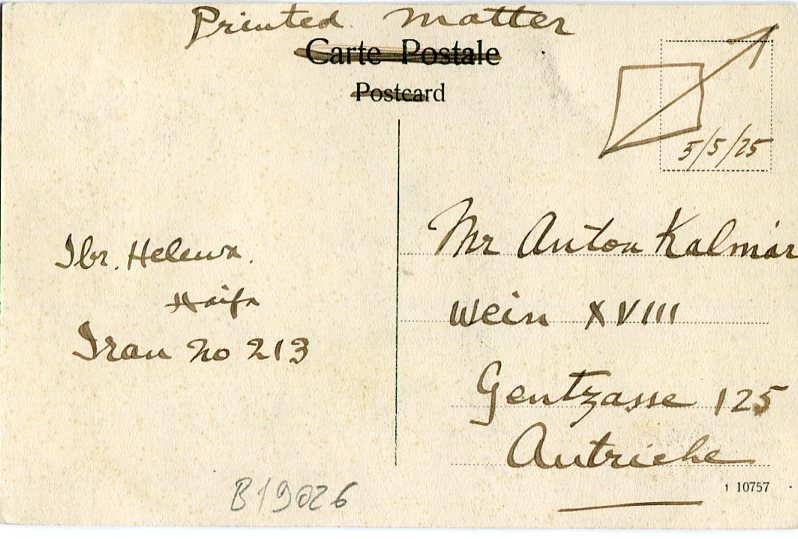 Printed matter
Carte Postale
Postcard
5/5/25
Ibr. Helewa.
Haifa
Iran no 213
Mr Anton Kalmár
Wein XVIII
Gentzasse 125
Autriche
B19026
10757